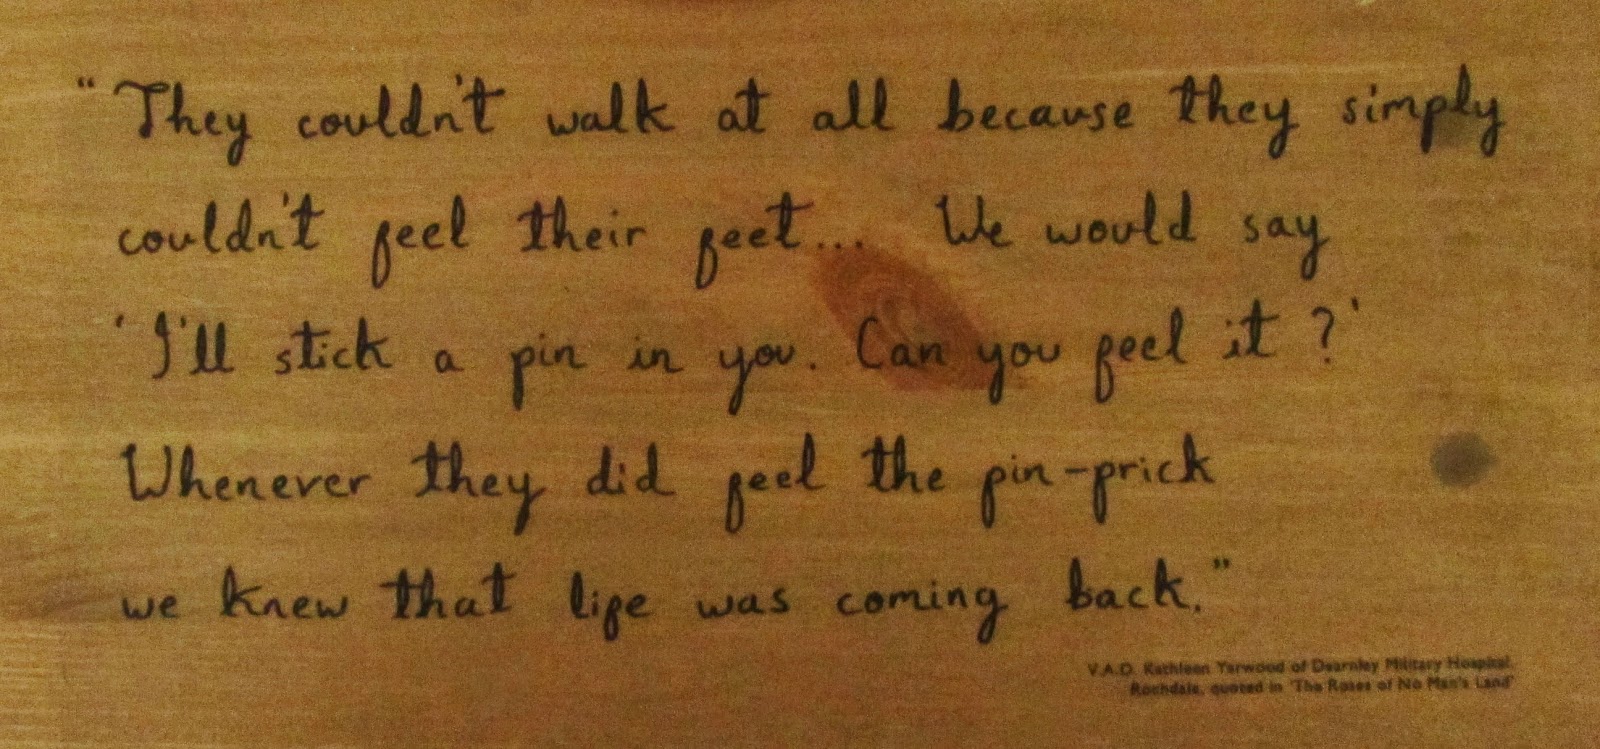 “They couldn't walk at all because they simply
couldn't feel their feet... We would say
'I'll stick a pin in you. Can you feel it?'
Whenever they did feel the pin-prick
we knew that life was coming back.”
V.A.D. Kathleen Yarwood of Dearnley Military Hospital,
Rochdale, quoted in 'The Roses of No Man's Land'